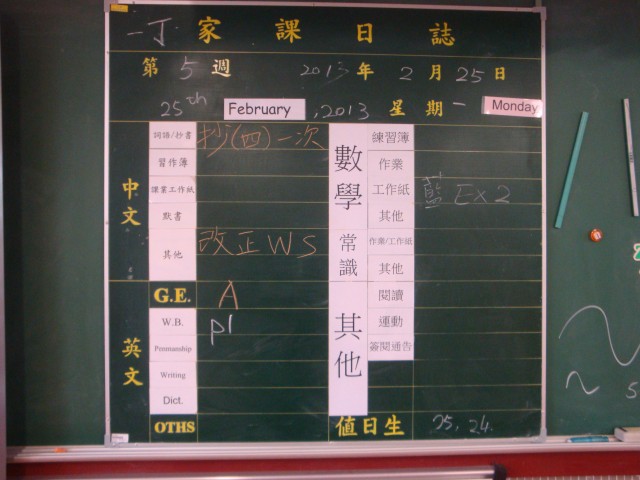 一丁 家課日誌
第 5 週 2013 年 2 月 25 日
25th February , 2013 星期 一 Monday
中文
詞語/抄書 抄(四)一次
習作簿
課業工作紙
默書
其他 改正 WS
英文
G.E. A
W.B. p1
Penmanship
Writing
Dict.
OTHS
數學
練習簿
作業
工作紙 藍 EX2
其他
常識
作業/工作紙
其他
其他
閱讀
運動
簽閱通告
值日生 25, 24.